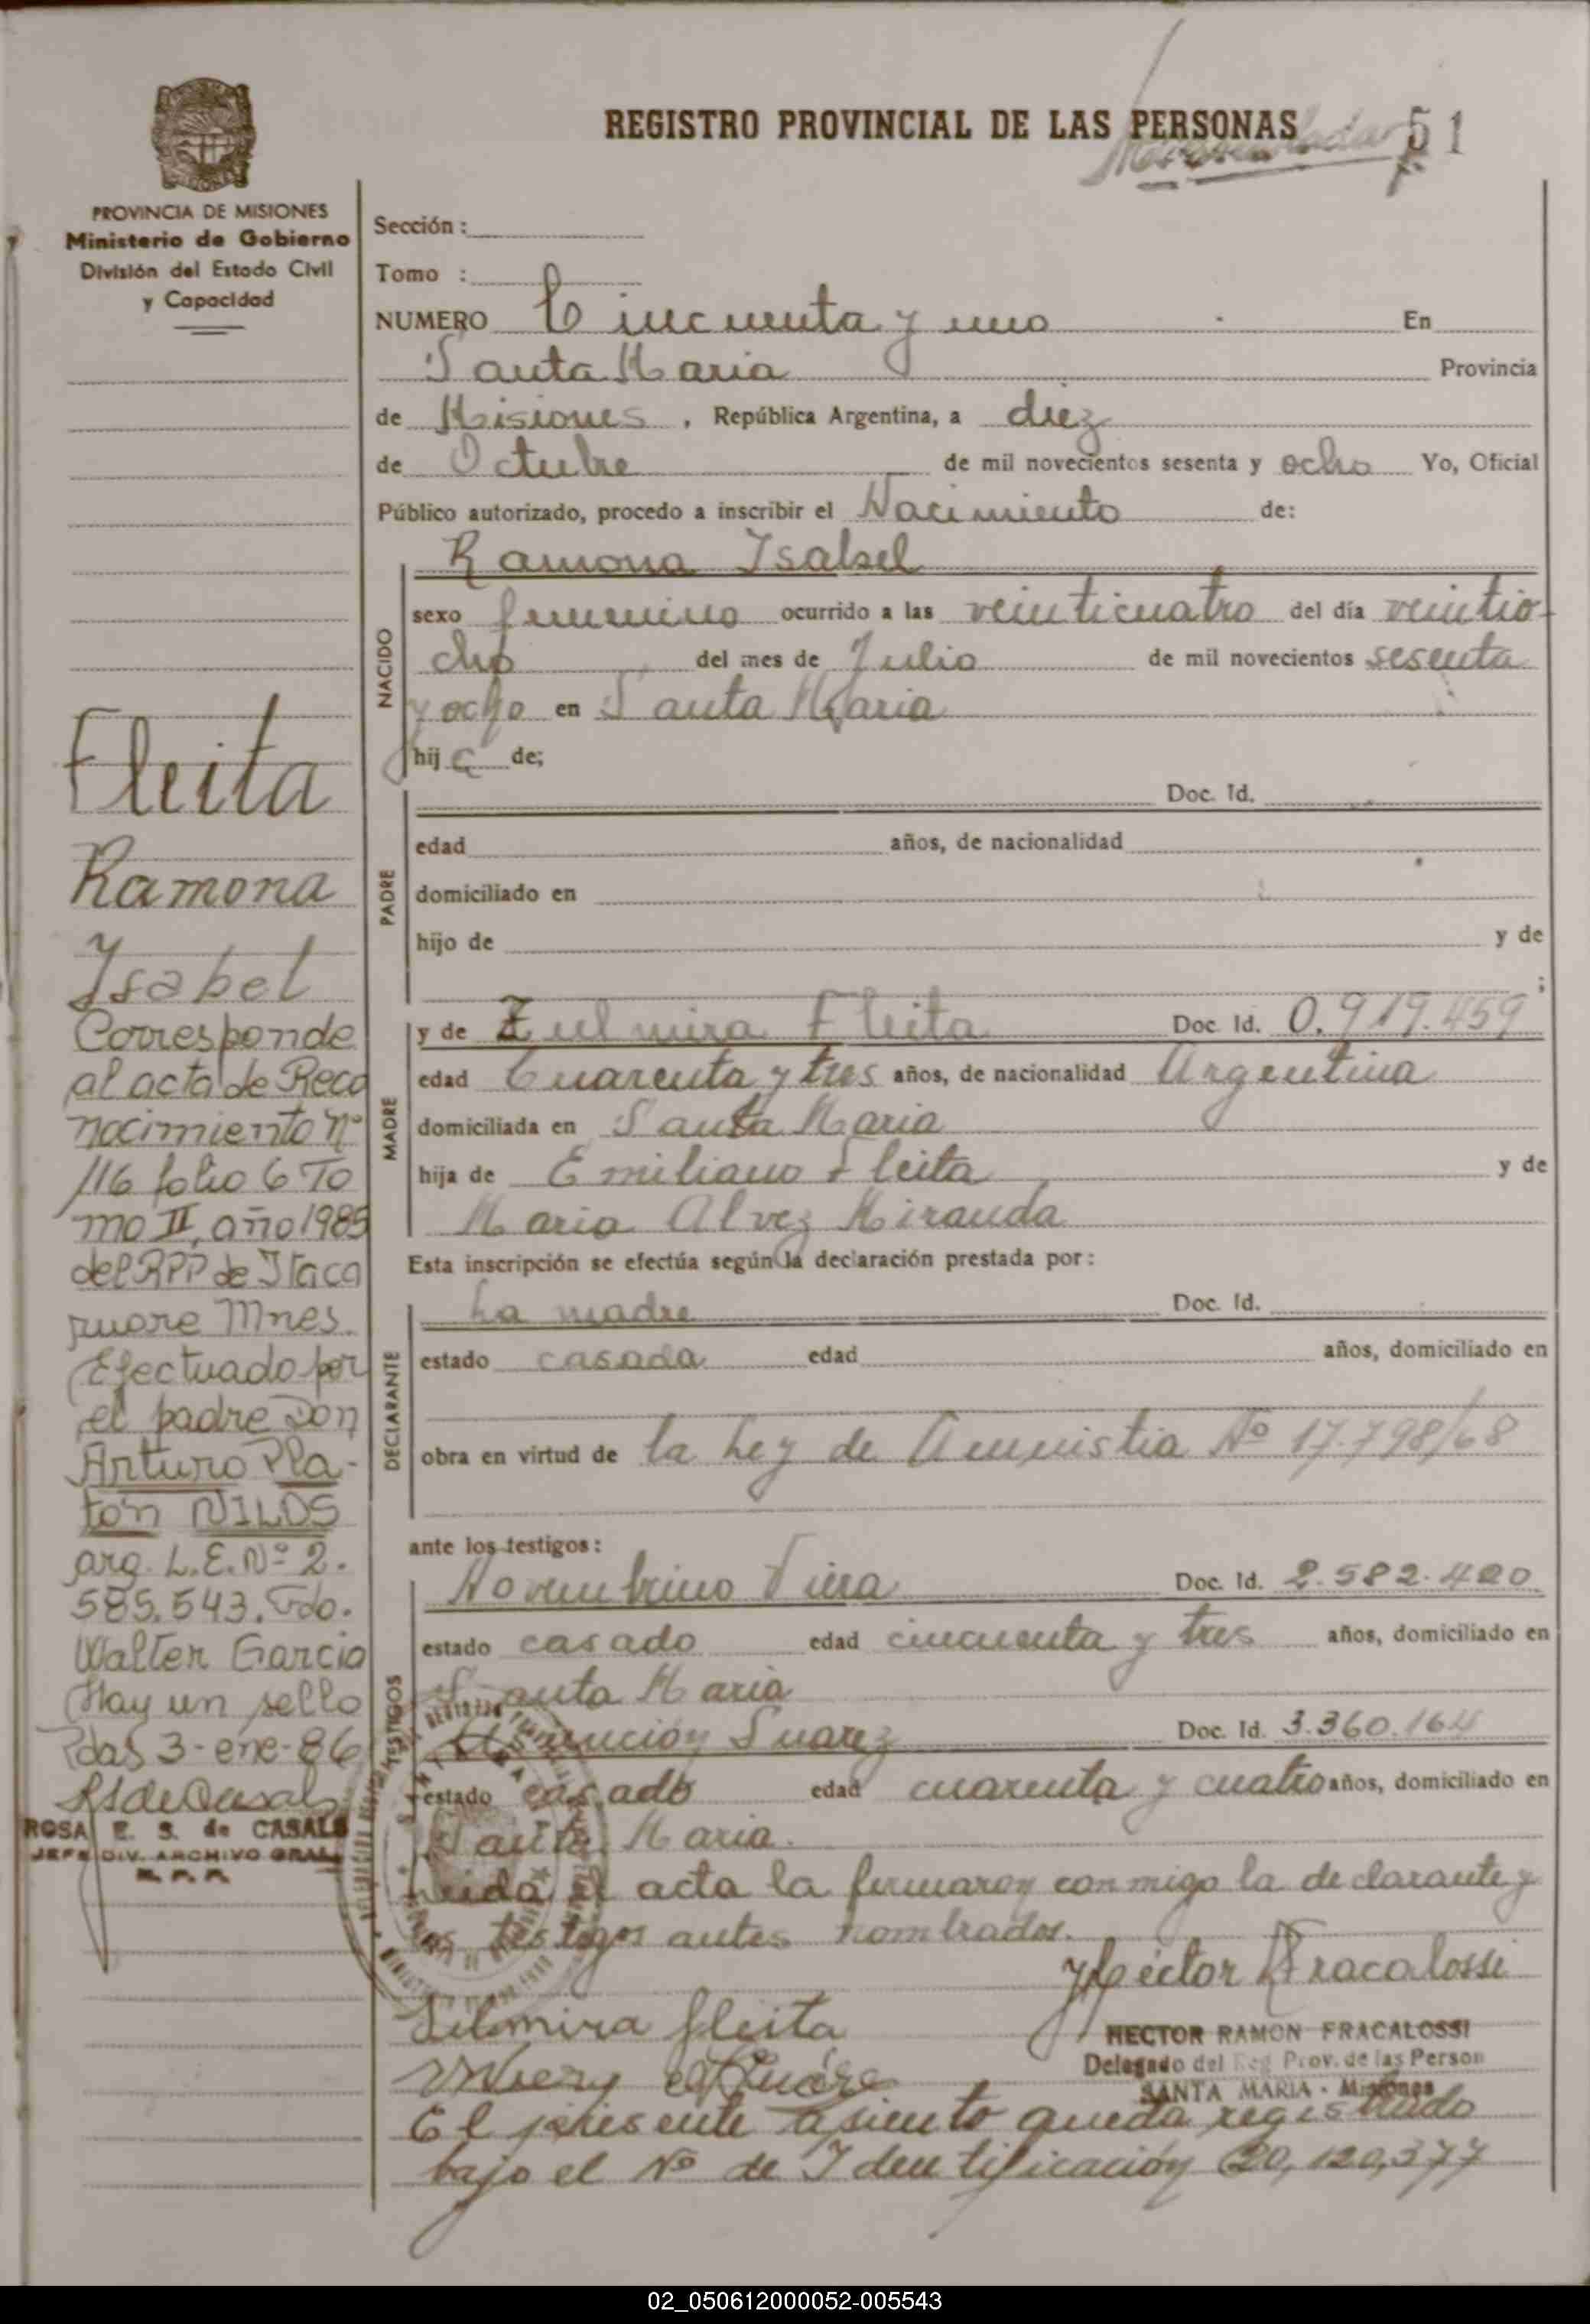 REGISTRO PROVINCIAL DE LAS PERSONAS
51
PROVINCIA DE MISIONES
Ministerio de Gobierno
División del Estado Civil
y Capacidad
Sección :
Tomo :
NUMERO Cincuenta y uno En
Santa Maria Provincia
de Misiones , República Argentina, a diez
de Octubre de mil novecientos sesenta y ocho Yo, Oficial
Público autorizado, procedo a inscribir el Nacimiento de:
NACIDO
Ramona Isabel
sexo femenino ocurrido a las veinticuatro del día veintio-
cho del mes de Julio de mil novecientos sesenta
y ocho en Santa Maria
hija de;
PADRE
Doc. Id.
edad años, de nacionalidad
domiciliado en
hijo de y de
;
MADRE
y de Zulmira Fleita Doc. Id. 0.919.459
edad Cuarenta y tres años, de nacionalidad Argentina
domiciliada en Santa Maria
hija de Emiliano Fleita y de
Maria Alvez Miranda
Esta inscripción se efectúa según la declaración prestada por :
DECLARANTE
La madre Doc. Id.
estado casada edad años, domiciliado en
obra en virtud de la Ley de Amnistia Nº 17.798/68
ante los testigos :
TESTIGOS
Novembrino Viera Doc. Id. 2.582.420
estado casado edad cincuenta y tres años, domiciliado en
Santa Maria
Asunción Suarez Doc. Id. 3.360.164
estado casado edad cuarenta y cuatro años, domiciliado en
Santa Maria.
Leida el acta la firmaron conmigo la declarante y
los testigos antes nombrados.
Hector R Fracalossi
HECTOR RAMON FRACALOSSI
Delegado del Reg Prov. de las Person
SANTA MARIA - Misiones
Fleita
El presente asiento queda registrado
bajo el Nº de Identificación 20,120,377
Fleita
Ramona
Isabel
Corresponde
al acta de Reco
nocimiento nº
116 folio 6 To
mo II, año 1985
del RPP de Itaca
ruare Mnes.
Efectuado por
el padre Don
Arturo Pla-
tón NILOS
arg. L.E. Nº 2.
585.543. Fdo.
Walter Garcia
Hay un sello
Pdas 3-ene-86
ROSA E. S. de CASALS
JEFE DIV. ARCHIVO GRAL
R. P. P.
02_050612000052-005543